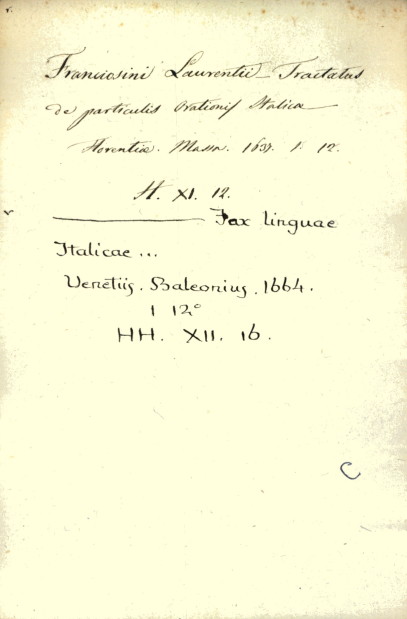 Franciosini Laurentii Tractatus
de particulis Orationis Italicae
Florentiae. Massa. 1637. 1. 12.
H. XI. 12.
Fax linguae
Italicae ...
Venetiis. Baleonius. 1664.
1 12°
HH. XII. 16.
C